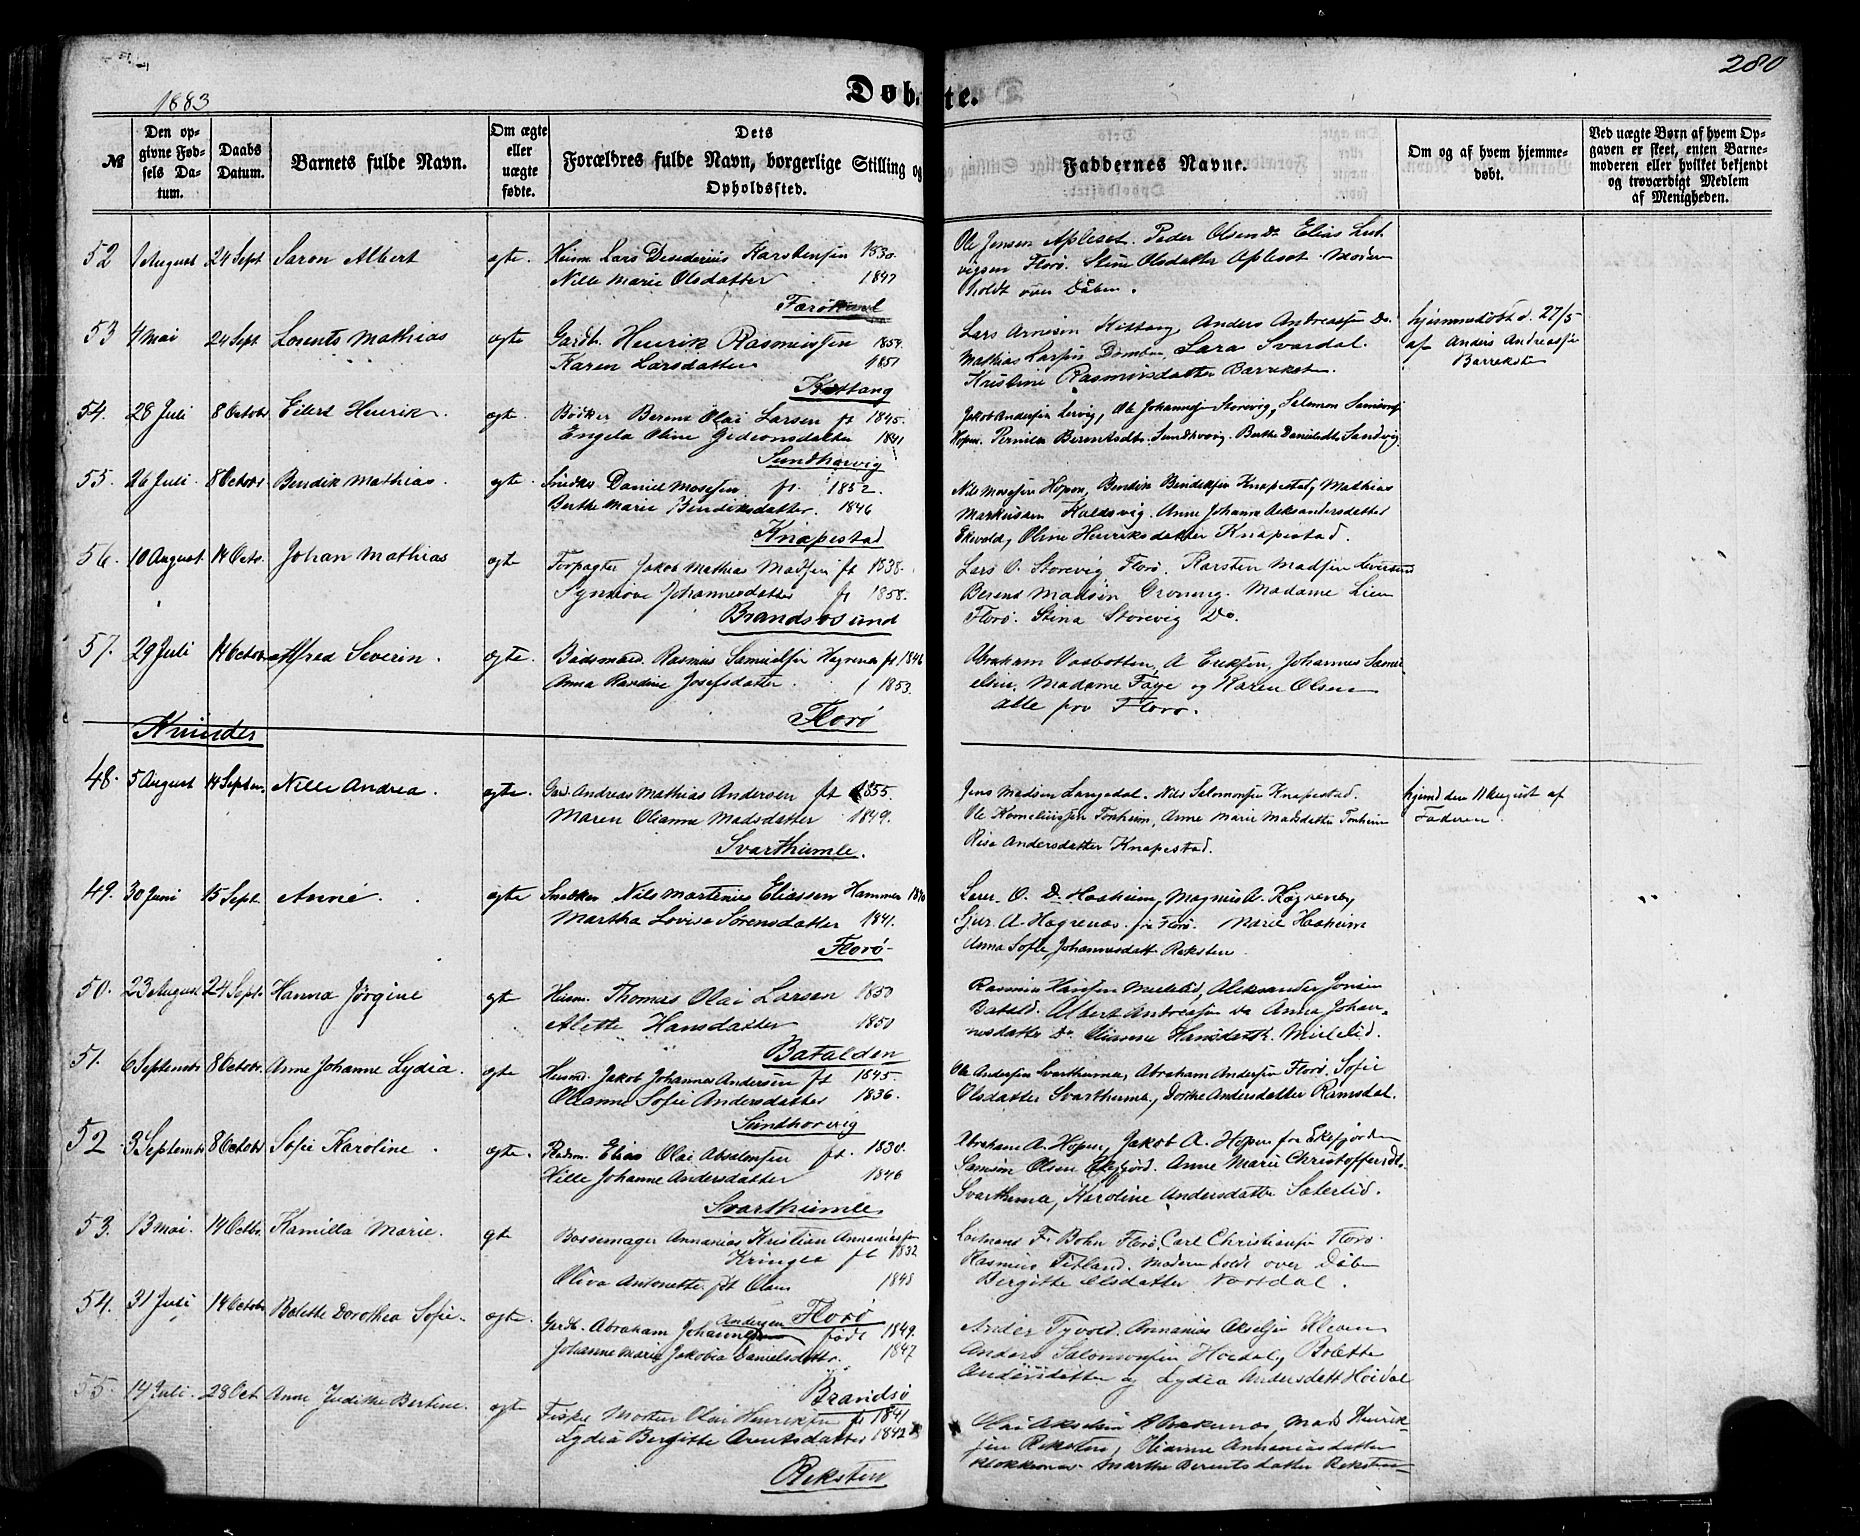 280
1883
Døbte.
№
Den opgivne Fødsels Datum.
Daabs Datum.
Barnets fulde Navn.
Om ægte eller uægte fødte.
Dets Forældres fulde Navn, borgerlige Stilling og Opholdssted.
Faddernes Navne.
Om og af hvem hjemmedøbt.
Ved uægte Børn af hvem Opgaven er skeet, enten Barnemoderen eller hvilket bekjendt og troværdigt Medlem af Menigheden.
52 1 August 24 Sept Saron Albert ægte. Husm. Lars Desederius Karstensen 1830.
Nille Marie Olsdatter 1847
Ole Jensen Apleset. Peder Olsen Do Elias Lud
vigsen Florø. Stine Olsdatter Apleset. Moder
holdt over Daaben.
53 4 Mai 24 Sept. Lorents Mathias ægte Gardb. Henrik Rasmussen 1854.
Karen Larsdatter 1851
Kittang
Lars Arnesen Kittang, Anders Andreassen Do.
Mathias Larsen Lara Svardal.
Kristine Rasmusdatter Barrekst
hjemmedøbt d. 27/5
af Anders Andreassen
Barrekst
54. 28 Juli 8 Octobr Eilert Henrik. ægte Bødker Berent Olai Larsen ft 1845.
Engela Oline Gideonsdatter 1841
Sundhovvig
Jakob Andersen Lervig, Ole Johannessen Storevig, Salomon Samsonsen
Hopen. Pernille Berentsdtr. Sundhovvig. Berthe Danielsdt. Sandvig
55. 26 Juli 8 Octobr Bendik Mathias. ægte Snedker Daniel Mosesen ft. 1852.
Berthe Marie Bendiksdatter. 1846
Knapestad
Nils Mosesen Hopen, Bendik Bendiksen Knapestad, Mathias
Markussen Kuldsvig. Anne Johanne Aleksandersdatter
Ekevold, Oline Henriksdatter Knapestad.
56. 10 August 14 Octr. Johan Mathias ægte Forpagter Jakob Mathias Madsen ft 1838.
Synnøve Johannesdatter ft 1858.
Brandsøsund
Lars O. Storevig Florø. Karsten Madsen
Berent Madsen Grøning. Madame Lien
Florø. Stina Storevig Do.
57. 29 Juli 14 Octobr Alfred Severin. ægte. Baadsmand. Rasmus Samuelsen Høgrenes ft. 1846
Anna Josefsdatter. f 1853.
Florø
Abraham Vasbotten, A Eriksen, Johannes Samu
elsen. Madame Faye og Karen Olsen
alle fra Florø.
Kvinder
48. 5 August 14 Septem. Nille Andrea. ægte. Gard. Andreas Mathias Andersen ft 1855.
Maren Olianne Madsdatter 1849.
Svarthumle.
Jens Madsen Langedal. Nils Salomonsen Knapestad.
Ole Korneliussen Tonheim, Anne Marie Madsdatter Tonheim
Risa Andersdatter Knapestad.
hjemd den 11 August af
Faderen
49. 30 Juni 15 Sept. Anne. ægte Snedker Nils Martenius Eliassen Hammer 1840
Martha Lovise Sørensdatter 1841.
Florø
Lærer O. D. Haaheim, Magnus A. Høgrenes,
Sjur A. Høgrenæs. fra Florø. Marie Haaheim
Anna Sofie Johannesdatt Reksten.
50. 23 August 24 Sept. Hanna Jørgine ægte Husm. Thomas Olai Larsen 1850
Alette Hansdatter 1850
Batalden
Rasmus Hansen Mielelid, Aleksander Jonsen
Batald. Albert Andreassen Do Anna Johan-
nesdatter Do. Olianne Hansdatt. Mielelid.
51. 6 Septembr 8 Octobr. Anne Johanne Lydia. ægte Husmd. Jakob Johannes Andersen ft 1845.
Olianne Sofie Andersdatter 1836.
Sundhovvig
Ole Andersen Svarthumle, Abraham Andersen Florø, Sofie
Olsdatter Svarthumle, Dorthe Andersdatter Ramsdal.
52 3 Septembr 8 Octobr Sofie Karoline. ægte. Elias Olai Absalonsen ft. 1830.
Hille Johanne Andersdatter 1846
Svarthumle
Abraham A. Hopen, Jakob A. Hopen fra Eikefjorden
Samson Olsen Eikefjord. Anne Marie Christoffersdt.
Svarthumle, Karoline Andersdatter Sæterlid.
53. 13 Mai. 14 Octbr. Kamilla Marie. ægte Bøssemager Annanias Kristian Annaniassen
Kringla ft 1832
Oliva Antonette ft Olsen 1848
Florø
Løitnant F. Bohn Florø, Carl Christiansen Florø.
Rasmus Fitland. Moderen holdt over Daaben
Birgitte Olsdatter Nordal.
54. 31 Juli 14 Octobr Bolette Dorothea Sofie. ægte. Gardb. Abraham Johannes Andersen født 1849.
Johanne Marie Jakobia Danielsdatter. 1847
Brandsø
Anders Tyvold. Annanias Akselsen
Anders Salomonsen Høidal, Bolette
Andersdatter og Lydia Andersdatt Høidal
55. 14 Juli. 28 Oct. Anne Judithe Bertine. ægte Fisker Morten Olai Henriksen ft 1841
Lydia Birgitte Arentsdatter 1842
Reksten
Olai Akselsen Klokkernæs, Mads Henrik-
sen Reksten, Olianne Annaniasdatter
Klokkernæs Marthe Berentsdatter Reksten